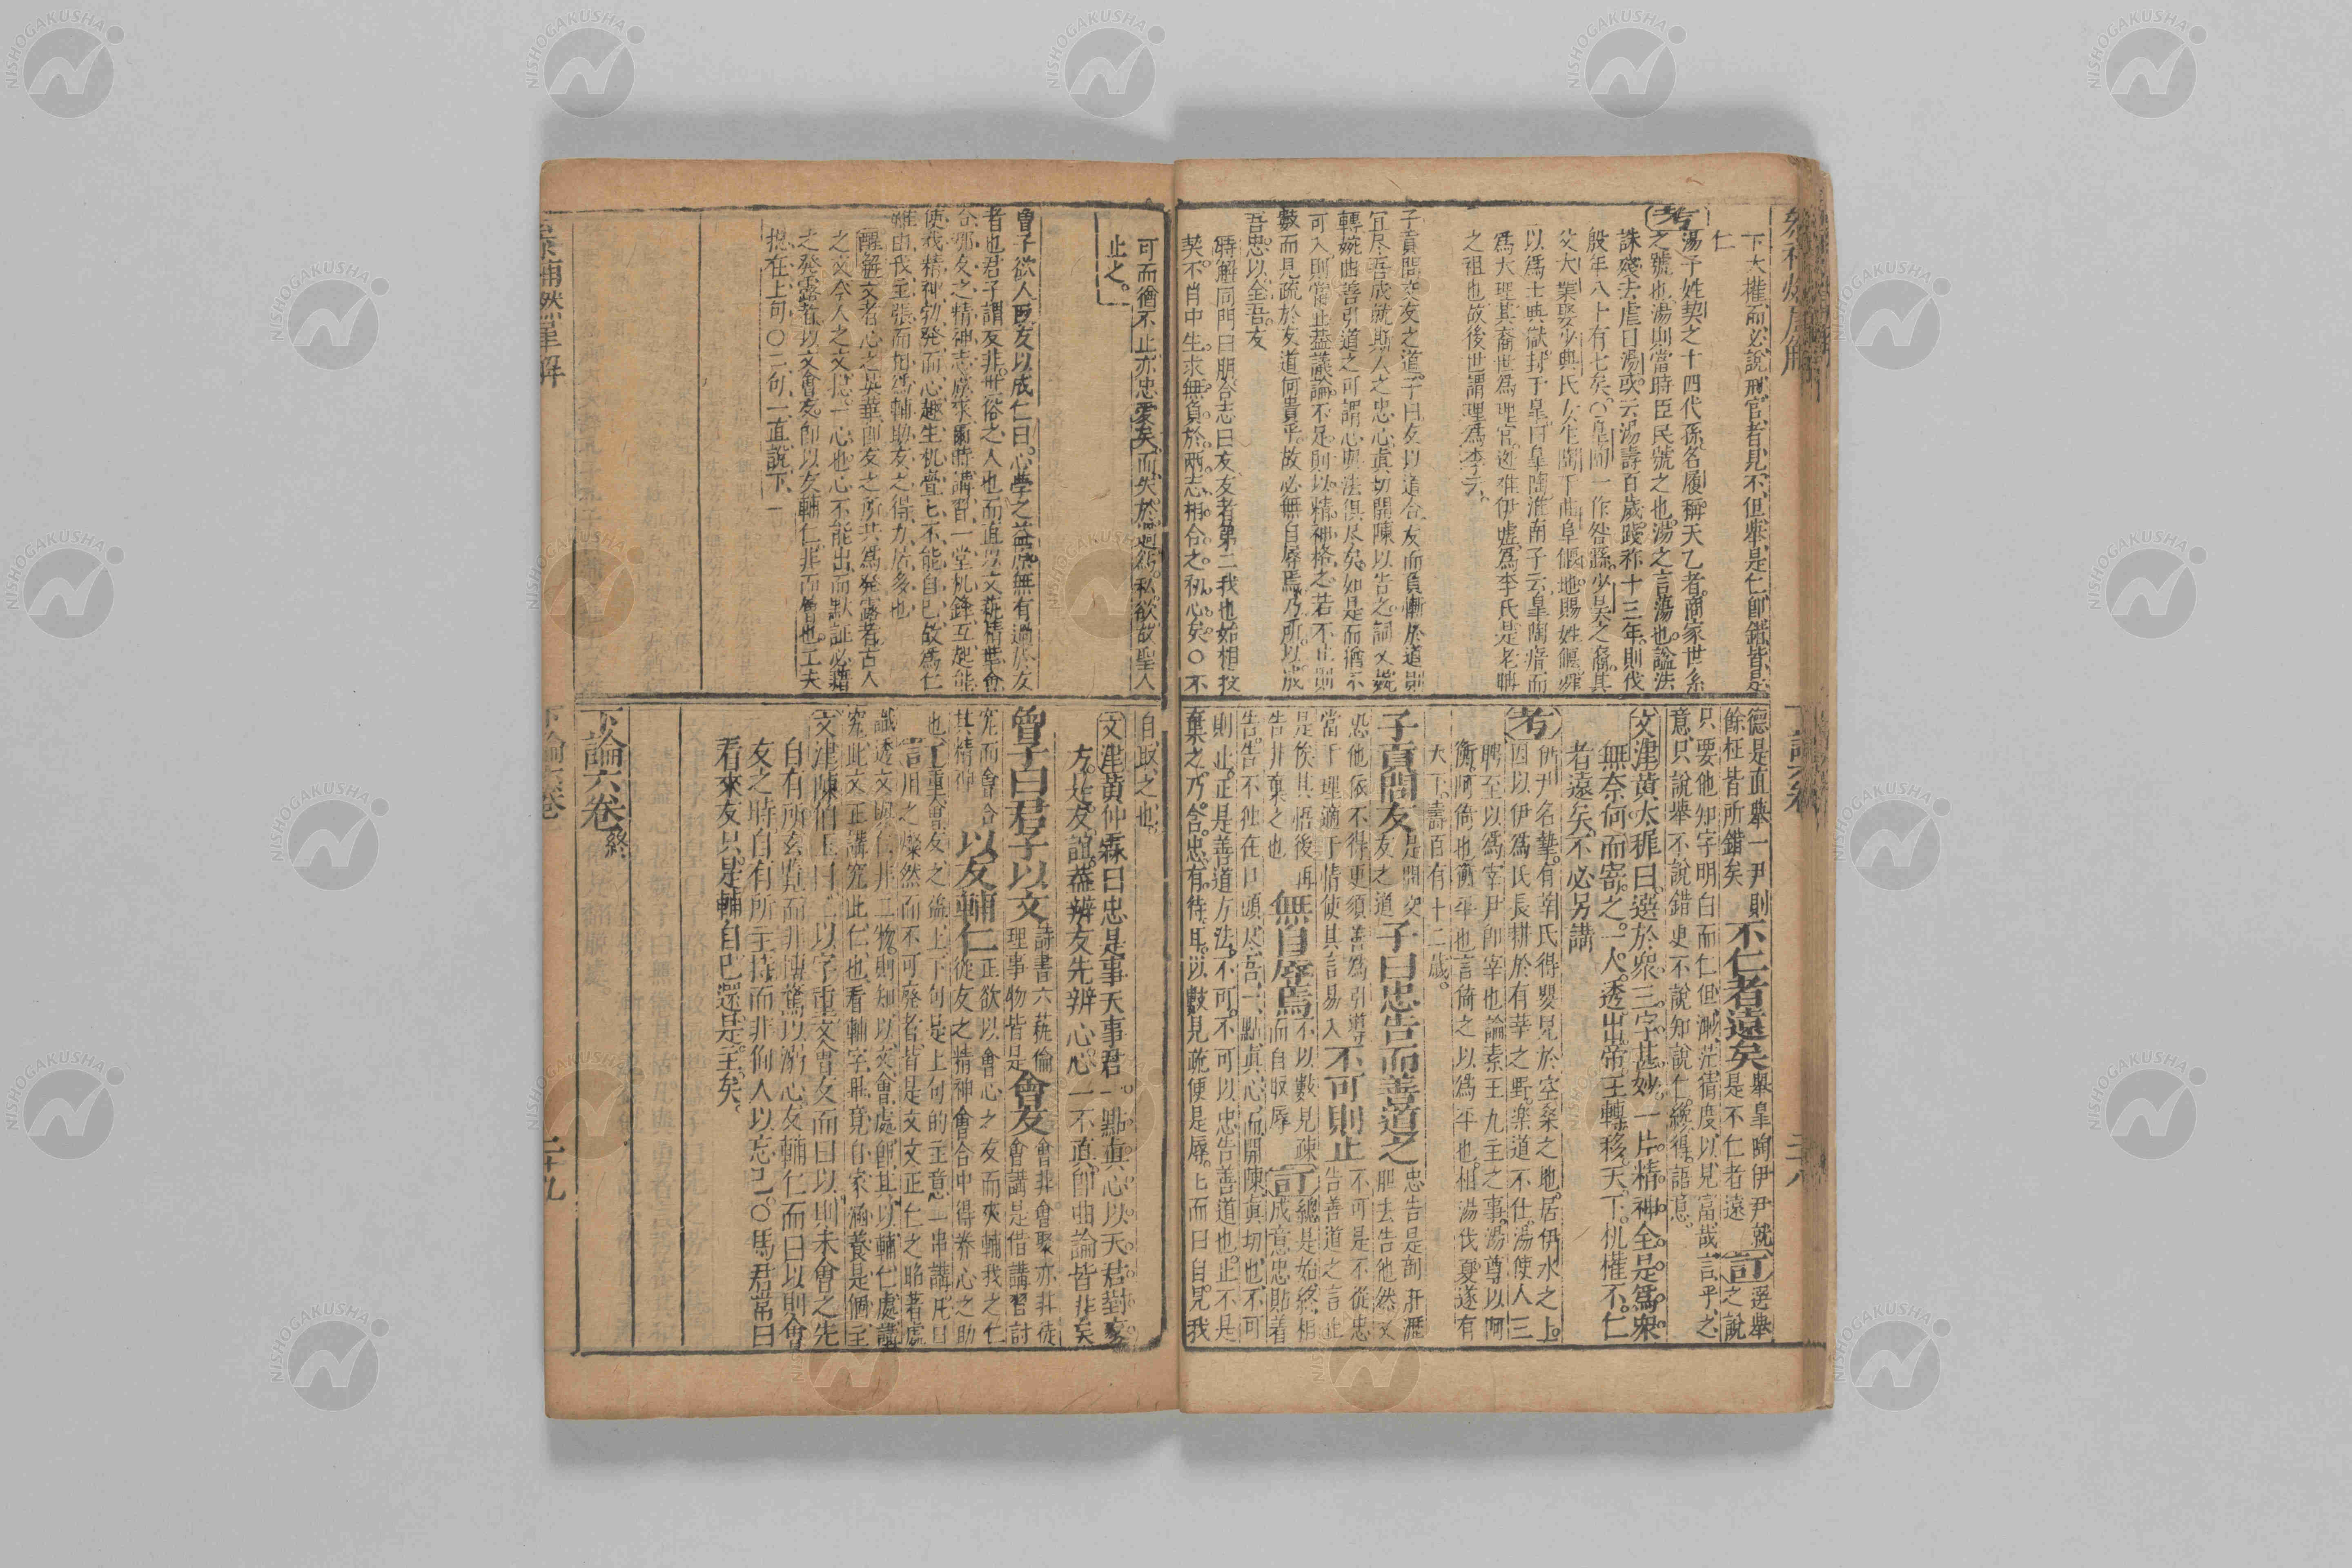 下大權而必說刑官者見不但舉是仁卽錯皆是
仁
考
湯子姓契之十四代孫名履稱天乙者商家世系
之號也湯則當時臣民號之也湯之言蕩也諡法
誅殘去虐曰湯或云湯壽百歲踐祚十三年則伐
殷年八十有七矣〇皐陶一作咎繇少昊之裔其
父大業娶少典氏女生陶于曲阜偃地賜姓偃舜
以爲士典獄封于皐曰皐陶淮南子云皐陶瘖而
爲大理其裔世爲理官逃難伊墟爲李氏是老聃
之祖也故後世謂理爲李云
子貢問交友之道子曰友以道合友而負慚於道則
宜尽吾成就斯人之忠心眞切開陳以告之詞又婉
轉婉曲善引道之可謂心與法俱尽矣如是而猶不
可入則當止葢議論不足則以精神格之若不止則
數而見疏於友道何貴乎故必無自辱焉乃所以成
吾忠以全吾友
時解同門曰朋合志曰友友者第二我也始相投
契不肖中生求無負於兩志相合之初心矣〇不
德是直舉一尹則不仁者遠矣舉皐陶伊尹就是不仁者遠
餘枉皆所錯矣
訂選舉之說
只要他知字明白而仁但渺茫猜度以見富哉言乎之
意只說舉不說錯更不說知說仁總得語意
文津黃太穉曰選於衆三字甚妙一片精神全是爲衆
無奈何而寄之一人透出帝王轉移天下机權不仁
者遠矣不必另講
考
伊尹名摯有莘氏得嬰見於空桑之地居伊水之上
因以伊爲氏長耕於有莘之野楽道不仕湯使人三
聘至以爲宰尹卽宰也論素王九主之事湯尊以阿
衡阿倚也衡平也言倚之以爲平也相湯伐夏遂有
天下壽百有十二歲
子貢問友是問交友之道子曰忠告而善道之忠告是剖肝瀝胆去告他然又
恐他依不得更須善爲引導不可則止不可是不從忠告善道之言止
當于理適于情使其言易入
是俟其悟後再告非棄之也無自辱焉不以數見疎而自取辱訂總是始終相成意忠貼着
告告不他在口頭尽吾一點眞心而開陳眞切也不可
則止正是善道方法不可不可以忠告善道也止不是
棄之乃含忠有待耳以數見疏便是辱上而曰自見我
可而猶不止亦忠愛矣而失於過然私欲故聖人
止之
曾子欲人取友以成仁曰心學之益原無有過於友
者也君子謂友非世俗之人也而直以文蓺精華會
合那友之精神志慮來爾時講習一堂机鋒互起能
使我精神勃発而心趣生机畳七不能自已故爲仁
雖由我主張而相爲輔助友之得力居多也
醒解文者心之英華卽友之所共爲発露者古人
之文今人之文抵一心也心不能出而默証必藉
之発露者以文會友卽以友輔仁非面會也工夫
抱在上句〇二句一直說下
自取之也
文津黃仲霖曰忠是事天事君一點眞心以天君對交
友處友誼葢辨友先辨心心一不眞卽曲論皆非矣
曾子曰君子以文詩書六蓺倫理事物皆是會友會非會聚亦非徒會講是借講習討
究而會合正欲以會心之友而夾輔我之仁
其精神以友輔仁從友之精神會合中得养心之助
也訂重會友之益上下句是上句的主意一串講凡曰
言用之燦然而不可廢者皆是文文正仁之昭著處
識透文與仁非二物則知以文會處卽其以輔仁處講
究此文正講究此仁也看輔字畢竟自家涵養是個主
文津陳伯玉曰二以字重文會友而曰以則未會之先
自有所玄覧而非博騖以溺心友輔仁而曰以則會
友之時自有所主持而非徇人以忘己〇馬君常曰
看來友只是輔自己還是主矣
下論六卷終
下論六卷
二十九